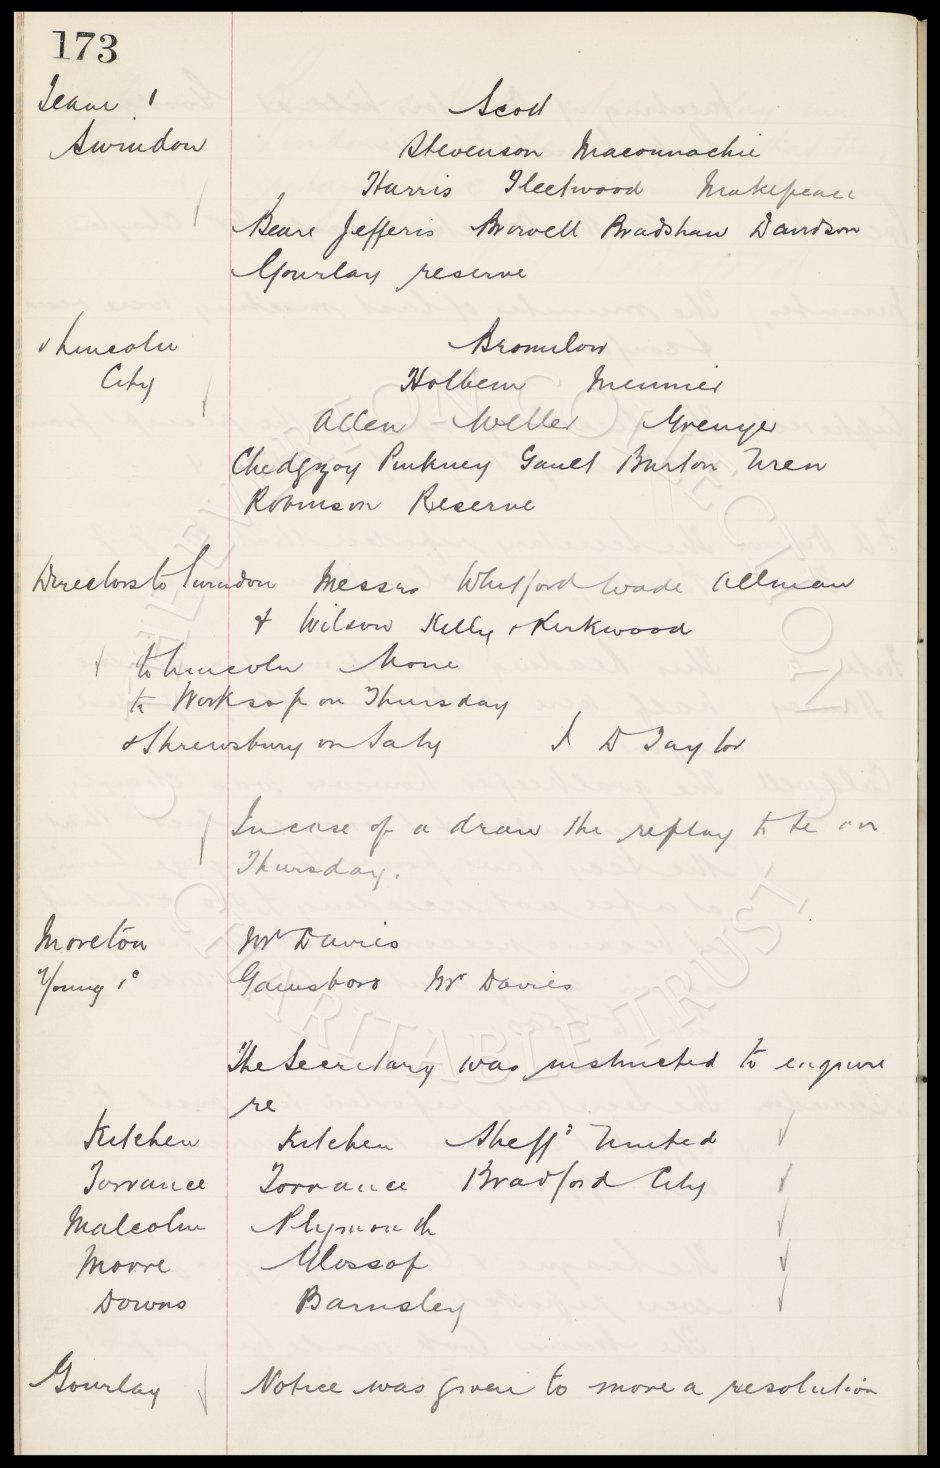 173
Team v Swindon
Scott
Stevenson Maconnachie
Harris Fleetwood Makepeace
Beare Jefferis Browell Bradshaw Davidson
Gourlay reserve
v Lincoln City
Bromilow
Holbem Meunier
Allen Weller Grenyer
Chedgzoy Pinkney Gault Burton Wren
Robinson Reserve
Directors to Swindon Messrs Whitford Wade Allman
& Wilson Kelly & Kirkwood
to Lincoln None
to Worksop on Thursday
& Shrewsbury on Saty D Taylor
In case of a draw the replay to be on
Thursday.
Moreton Mr Davies
Young Gainsboro Mr Davies
The Secretary was instructed to enquire
re
Kitchen Kitchen Sheffd United
Torrance Torrance Bradford City
Malcolm Plymouth
Moore Glossop
Downs Barnsley
Gourlay Notice was given to move a resolution
EVERTON COLLECTION
CHARITABLE TRUST